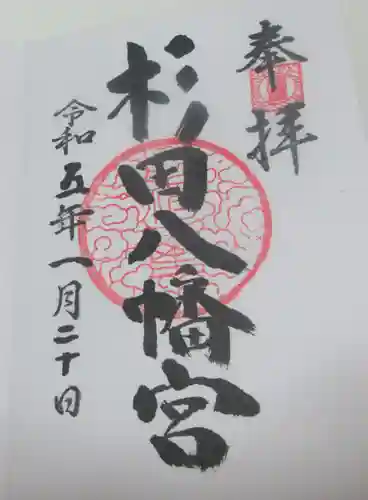 奉拝
杉田八幡宮
令和五年一月二十日